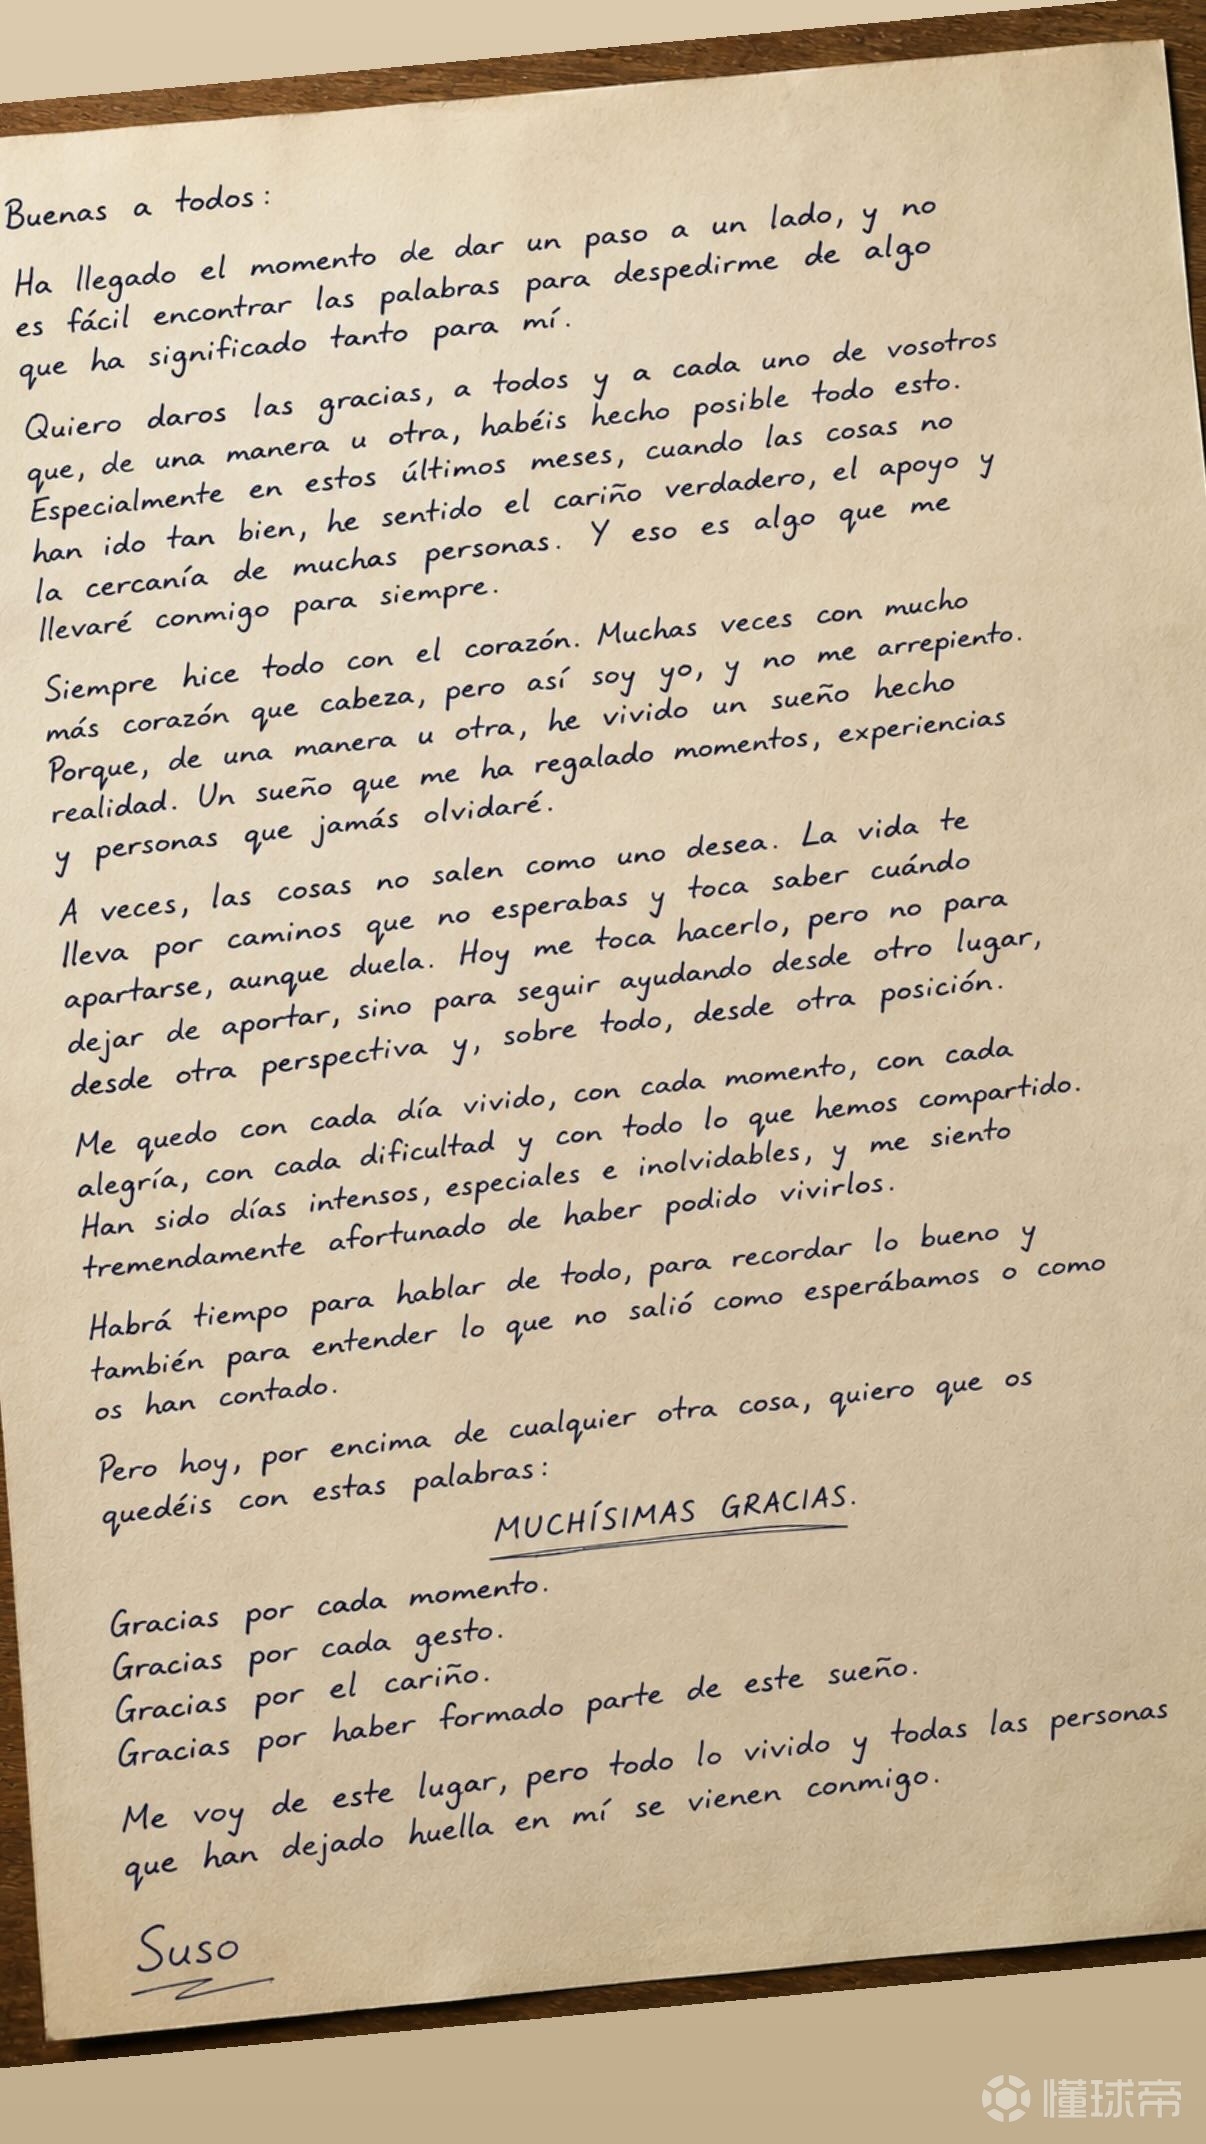 Buenas a todos:
Ha llegado el momento de dar un paso a un lado, y no
es fácil encontrar las palabras para despedirme de algo
que ha significado tanto para mí.
Quiero daros las gracias, a todos y a cada uno de vosotros
que, de una manera u otra, habéis hecho posible todo esto.
Especialmente en estos últimos meses, cuando las cosas no
han ido tan bien, he sentido el cariño verdadero, el apoyo y
la cercanía de muchas personas. Y eso es algo que me
llevaré conmigo para siempre.
Siempre hice todo con el corazón. Muchas veces con mucho
más corazón que cabeza, pero así soy yo, y no me arrepiento.
Porque, de una manera u otra, he vivido un sueño hecho
realidad. Un sueño que me ha regalado momentos, experiencias
y personas que jamás olvidaré.
A veces, las cosas no salen como uno desea. La vida te
lleva por caminos que no esperabas y toca saber cuándo
apartarse, aunque duela. Hoy me toca hacerlo, pero no para
dejar de aportar, sino para seguir ayudando desde otro lugar,
desde otra perspectiva y, sobre todo, desde otra posición.
Me quedo con cada día vivido, con cada momento, con cada
alegría, con cada dificultad y con todo lo que hemos compartido.
Han sido días intensos, especiales e inolvidables, y me siento
tremendamente afortunado de haber podido vivirlos.
Habrá tiempo para hablar de todo, para recordar lo bueno y
también para entender lo que no salió como esperábamos o como
os han contado.
Pero hoy, por encima de cualquier otra cosa, quiero que os
quedéis con estas palabras:
MUCHÍSIMAS GRACIAS.
Gracias por cada momento.
Gracias por cada gesto.
Gracias por el cariño.
Gracias por haber formado parte de este sueño.
Me voy de este lugar, pero todo lo vivido y todas las personas
que han dejado huella en mí se vienen conmigo.
Suso
懂球帝